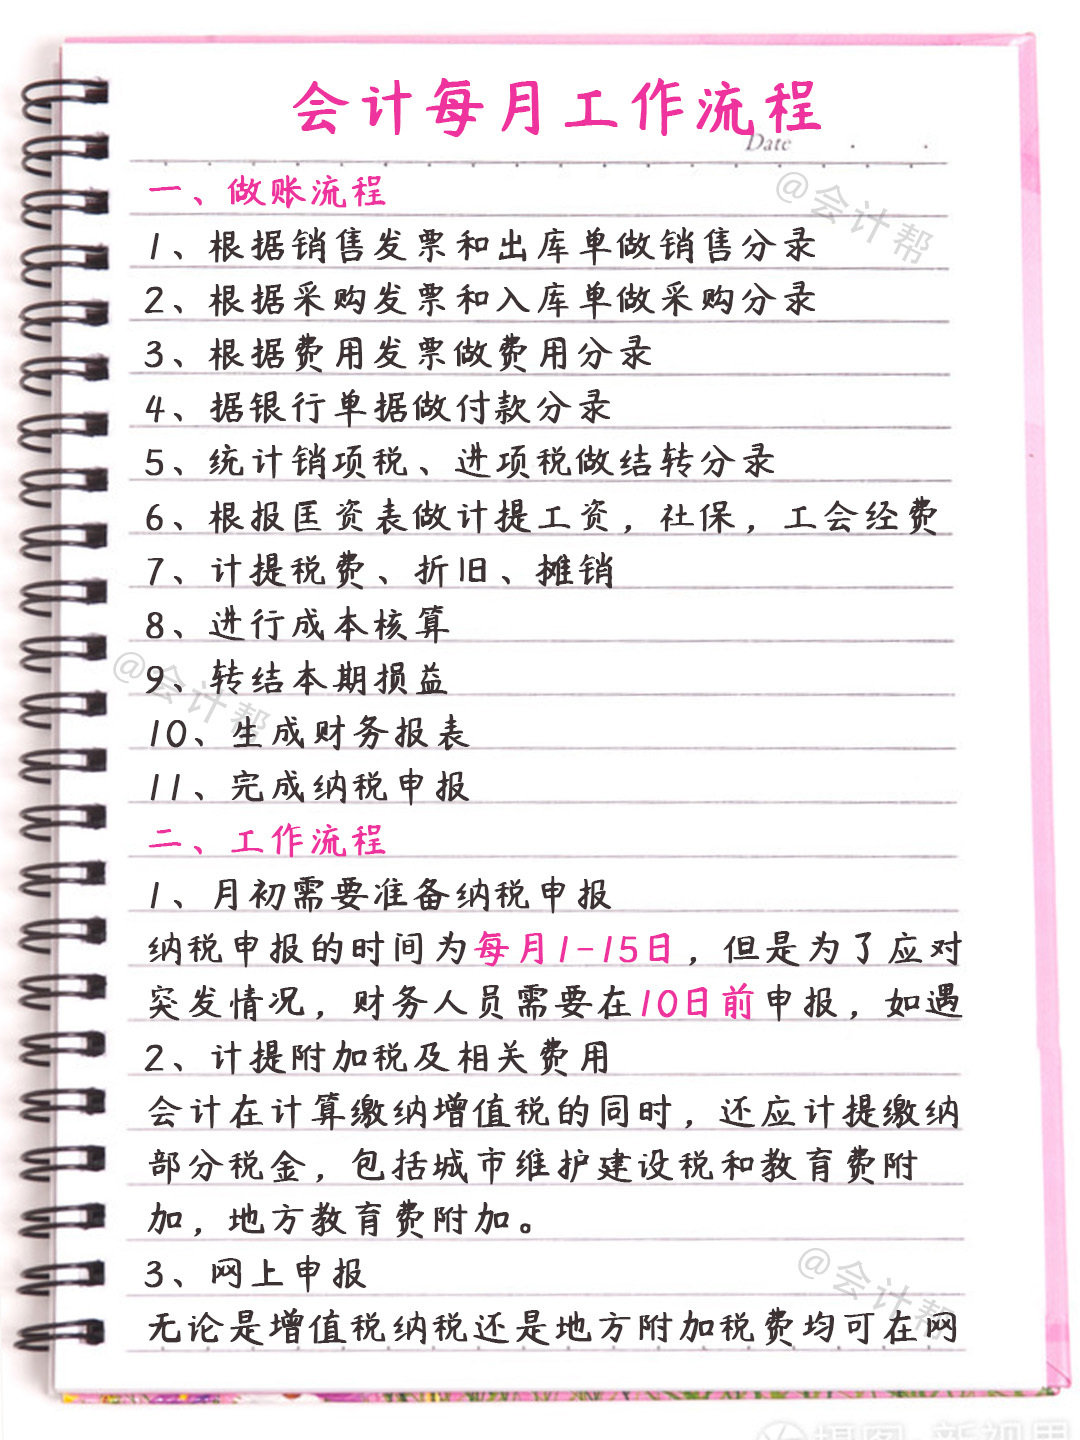 会计每月工作流程
Date
一、做账流程
@会计帮
1、根据销售发票和出库单做销售分录
2、根据采购发票和入库单做采购分录
3、根据费用发票做费用分录
4、据银行单据做付款分录
5、统计销项税、进项税做结转分录
6、根报匡资表做计提工资，社保，工会经费
7、计提税费、折旧、摊销
8、进行成本核算
9、转结本期损益
@会计帮
10、生成财务报表
11、完成纳税申报
二、工作流程
1、月初需要准备纳税申报
纳税申报的时间为每月1-15日，但是为了应对
突发情况，财务人员需要在10日前申报，如遇
2、计提附加税及相关费用
会计在计算缴纳增值税的同时，还应计提缴纳
部分税金，包括城市维护建设税和教育费附
加，地方教育费附加。
3、网上申报
@会计帮
无论是增值税纳税还是地方附加税费均可在网